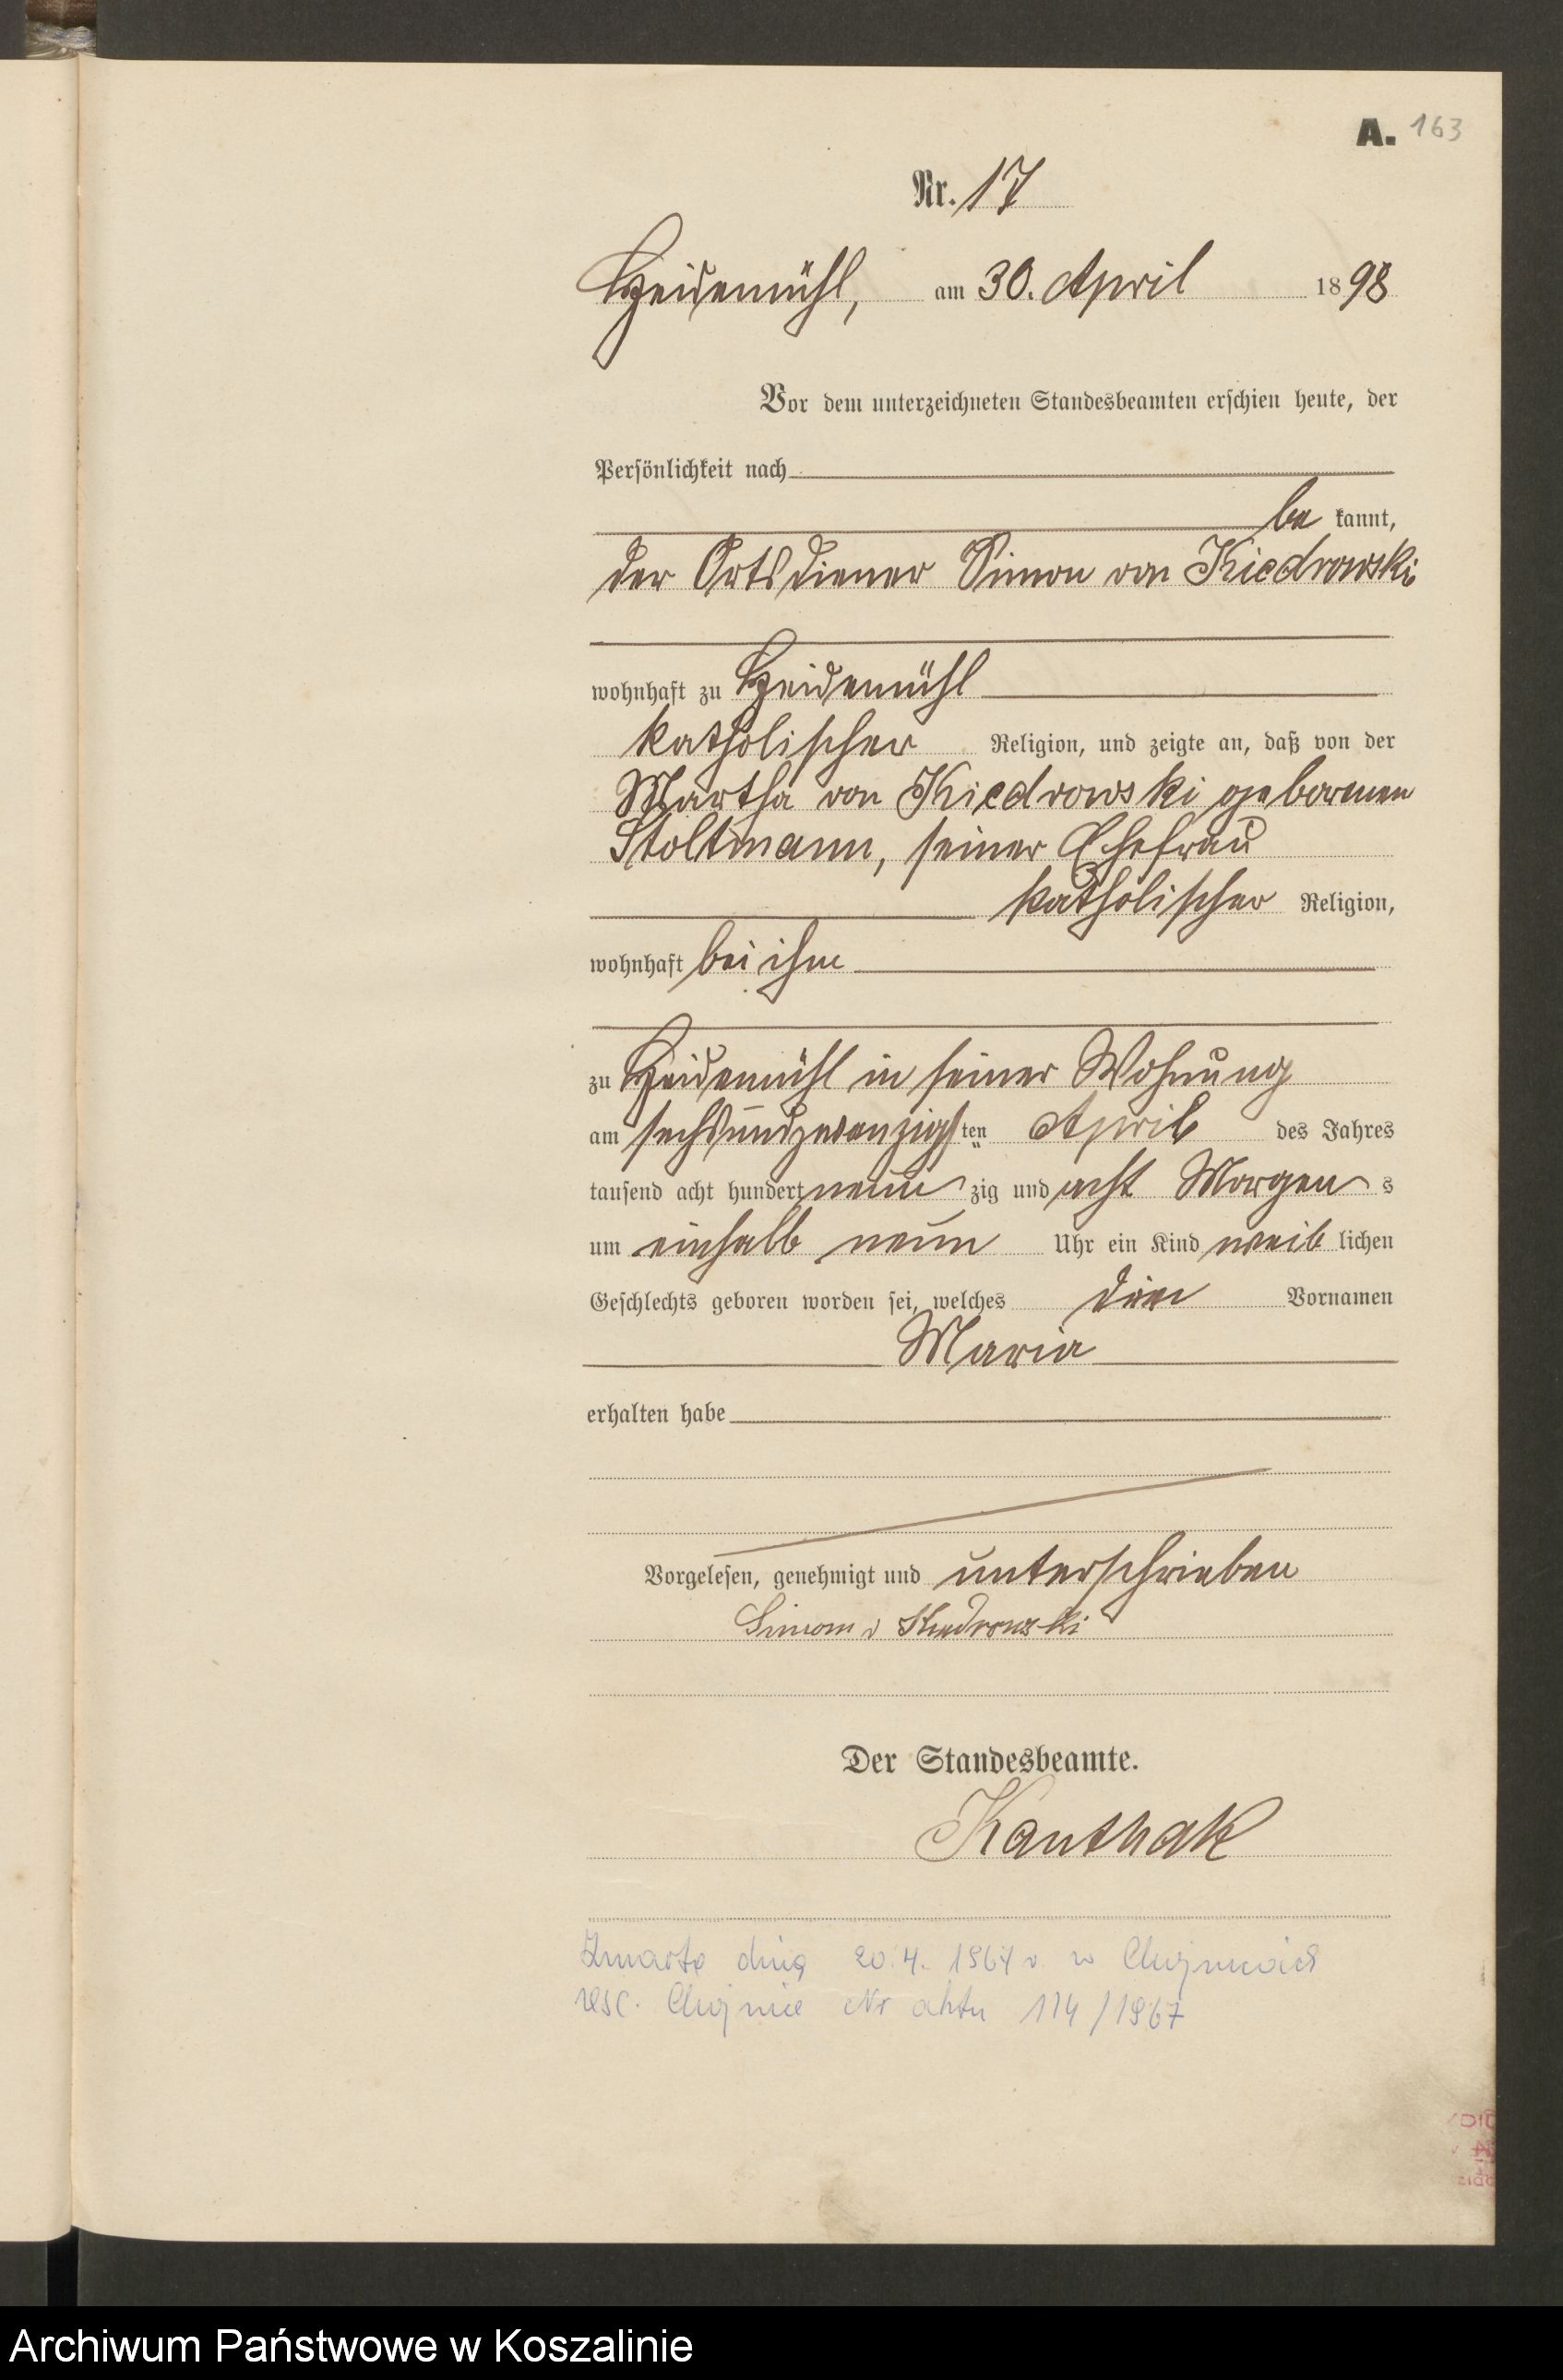 A. 163
Nr. 17
Heidemühl, am 30. April 1898
Vor dem unterzeichneten Standesbeamten erschien heute, der
Persönlichkeit nach
be kannt,
der Ortsdiener Simon von Kiedrowski
wohnhaft zu Heidemühl
katholischer Religion, und zeigte an, daß von der
Martha von Kiedrowski geborenen
Stoltmann, seiner Ehefrau
katholischer Religion,
wohnhaft bei ihm
zu Heidemühl in seiner Wohnung
am sechsundzwanzigsten April des Jahres
tausend acht hundert neun zig und acht Morgens
um einhalb neun Uhr ein Kind weiblichen
Geschlechts geboren worden sei, welches den Vornamen
Maria
erhalten habe
Vorgelesen, genehmigt und unterschrieben
Simon v Kiedrowski
Der Standesbeamte.
Kanthak
Zmarła dnia 20.4. 1967 r. w Chojnicach
USC. Chojnice Nr aktu 114/1967
Archiwum Państwowe w Koszalinie